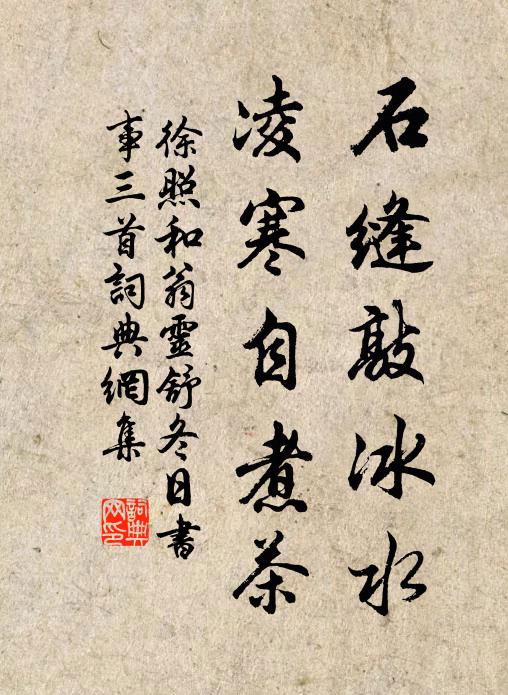 石縫敲冰水
凌寒自煮茶
徐照和翁靈舒冬日書
事三首詞典網集
詞典
网印